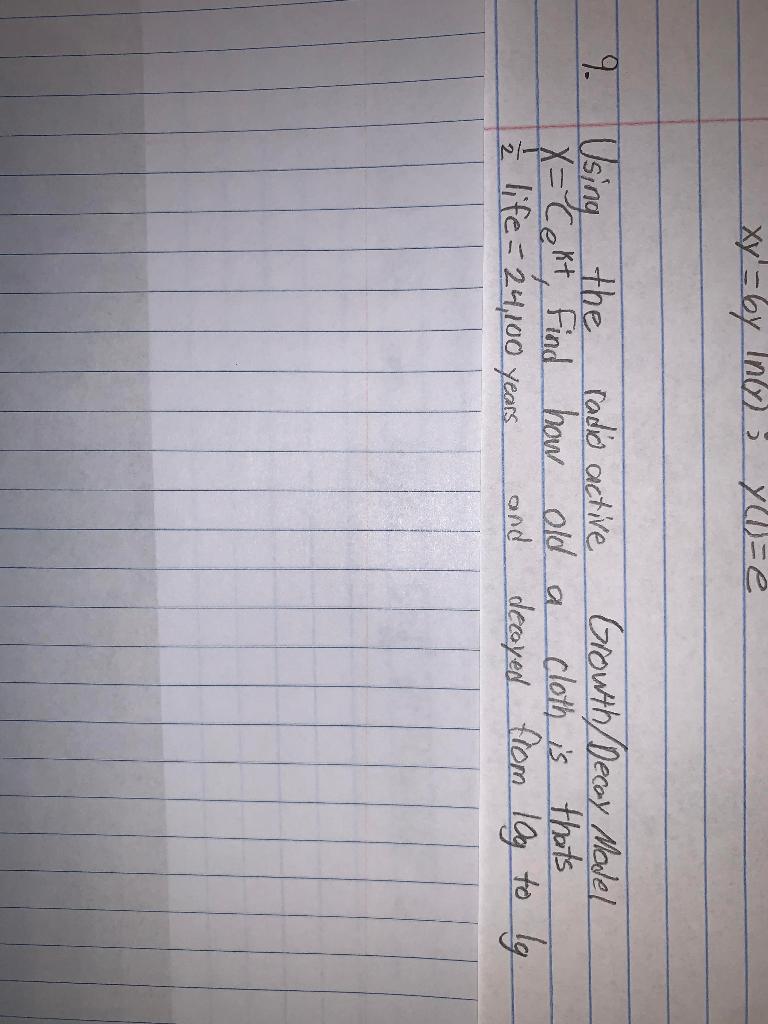 xy'=6y ln(y) ; y(1)=e
9. Using the radioactive Growth/Decay Model
y=Ce^kt, find how old a cloth is thats
1/2 life = 24,100 years and decayed from 10g to 1g